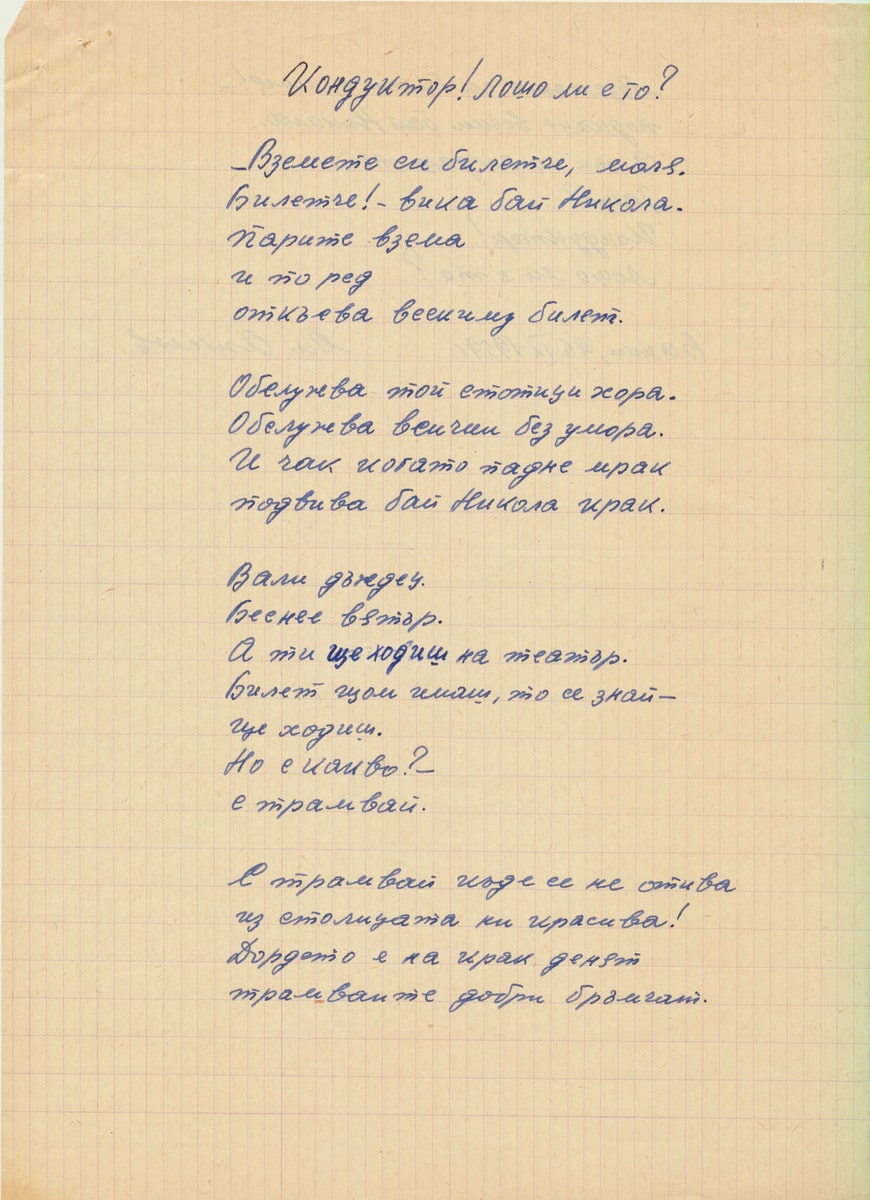 Кондуктор! Лошо ли е то?
–Вземете си билетче, моля.
Билетче! – вика бай Никола.
Парите взема
и по ред
откъсва всекиму билет.
Обслужва той стотици хора.
Обслужва всички без умора.
И чак когато падне мрак
подвива бай Никола крак.
Вали дъждец.
Беснее вятър.
А ти ще ходиш на театър.
Билет щом имаш, то се знай –
ще ходиш.
Но с какво? –
с трамвай.
С трамвай къде се не отива
из столицата ни красива!
Дордето е на крак денят
трамваите добри бръмчат.